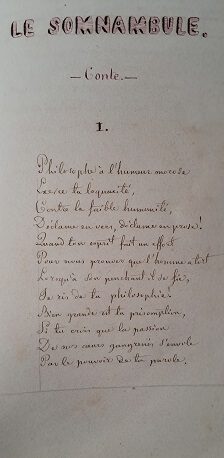 LE SOMNAMBULE.
— Conte. —
I.
Philosophe à l'humeur morose
Exerce ta loquacité,
Contre la faible humanité,
Déclame en vers, déclame en prose!
Quand ton esprit fait un effort
Pour nous prouver que l'homme a tort
Lorsqu'à son penchant il se fie,
Je ris de ta philosophie.
Bien grande est ta présomption,
Si tu crois que la passion
De nos cœurs gangrenés s'envole
Par le pouvoir de ta parole.